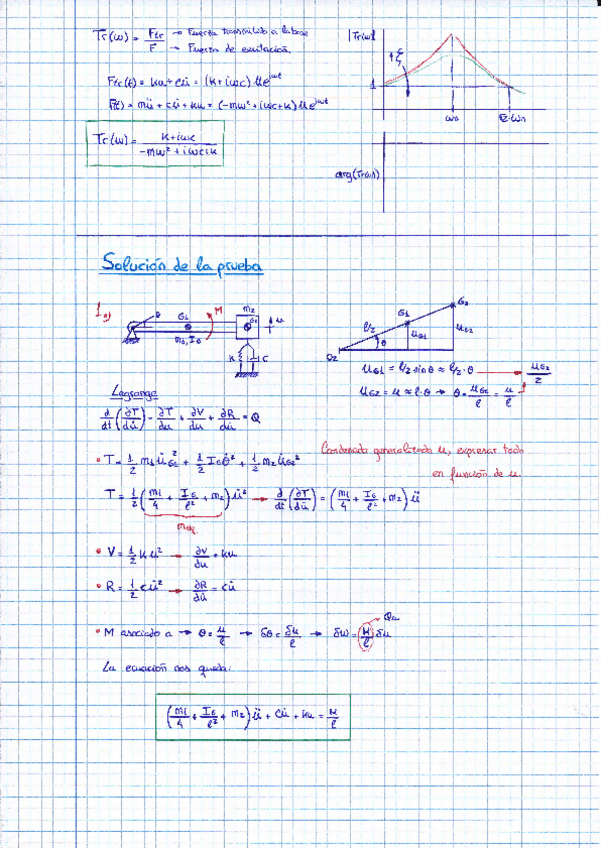 Tr(ω) = Ftr/F → Fuerza transmitido a la base
→ Fuerza de excitación.
|Tr(ω)|
ξ
1
ωn
√2·ωn
Ftr(t) = ku + cu̇ = (k + iωc) U e^iωt
F(t) = mü + cu̇ + ku = (-mω² + iωc + k) U e^iωt
Tr(ω) = (k + iωc)/(-mω² + iωc + k)
arg(Tr(ω))
Solución de la prueba
1a)
θ
G1
M
m2
G2
u
m1, IG
K
C
O2
l/2
θ
G1
G2
uG1
uG2
uG1 = l/2 sinθ ≈ l/2·θ → uG2/2
uG2 = u ≈ l·θ → θ = uG2/l = u/l
Lagrange
d/dt(∂T/∂u̇) - ∂T/∂u + ∂V/∂u + ∂R/∂u̇ = Q
• T = 1/2 m1 u̇G1² + 1/2 IG θ̇² + 1/2 m2 u̇G2²
Coordenada generalizada u, expresar todo
en función de u.
T = 1/2 (m1/4 + IG/l² + m2) u̇² → d/dt(∂T/∂u̇) = (m1/4 + IG/l² + m2) ü
meq
• V = 1/2 k u² → ∂V/∂u = ku
• R = 1/2 c u̇² → ∂R/∂u̇ = cu̇
• M asociado a → θ = u/l → δθ = δu/l → δW = (M/l) δu
La ecuación nos queda:
(m1/4 + IG/l² + m2) ü + cu̇ + ku = M/l